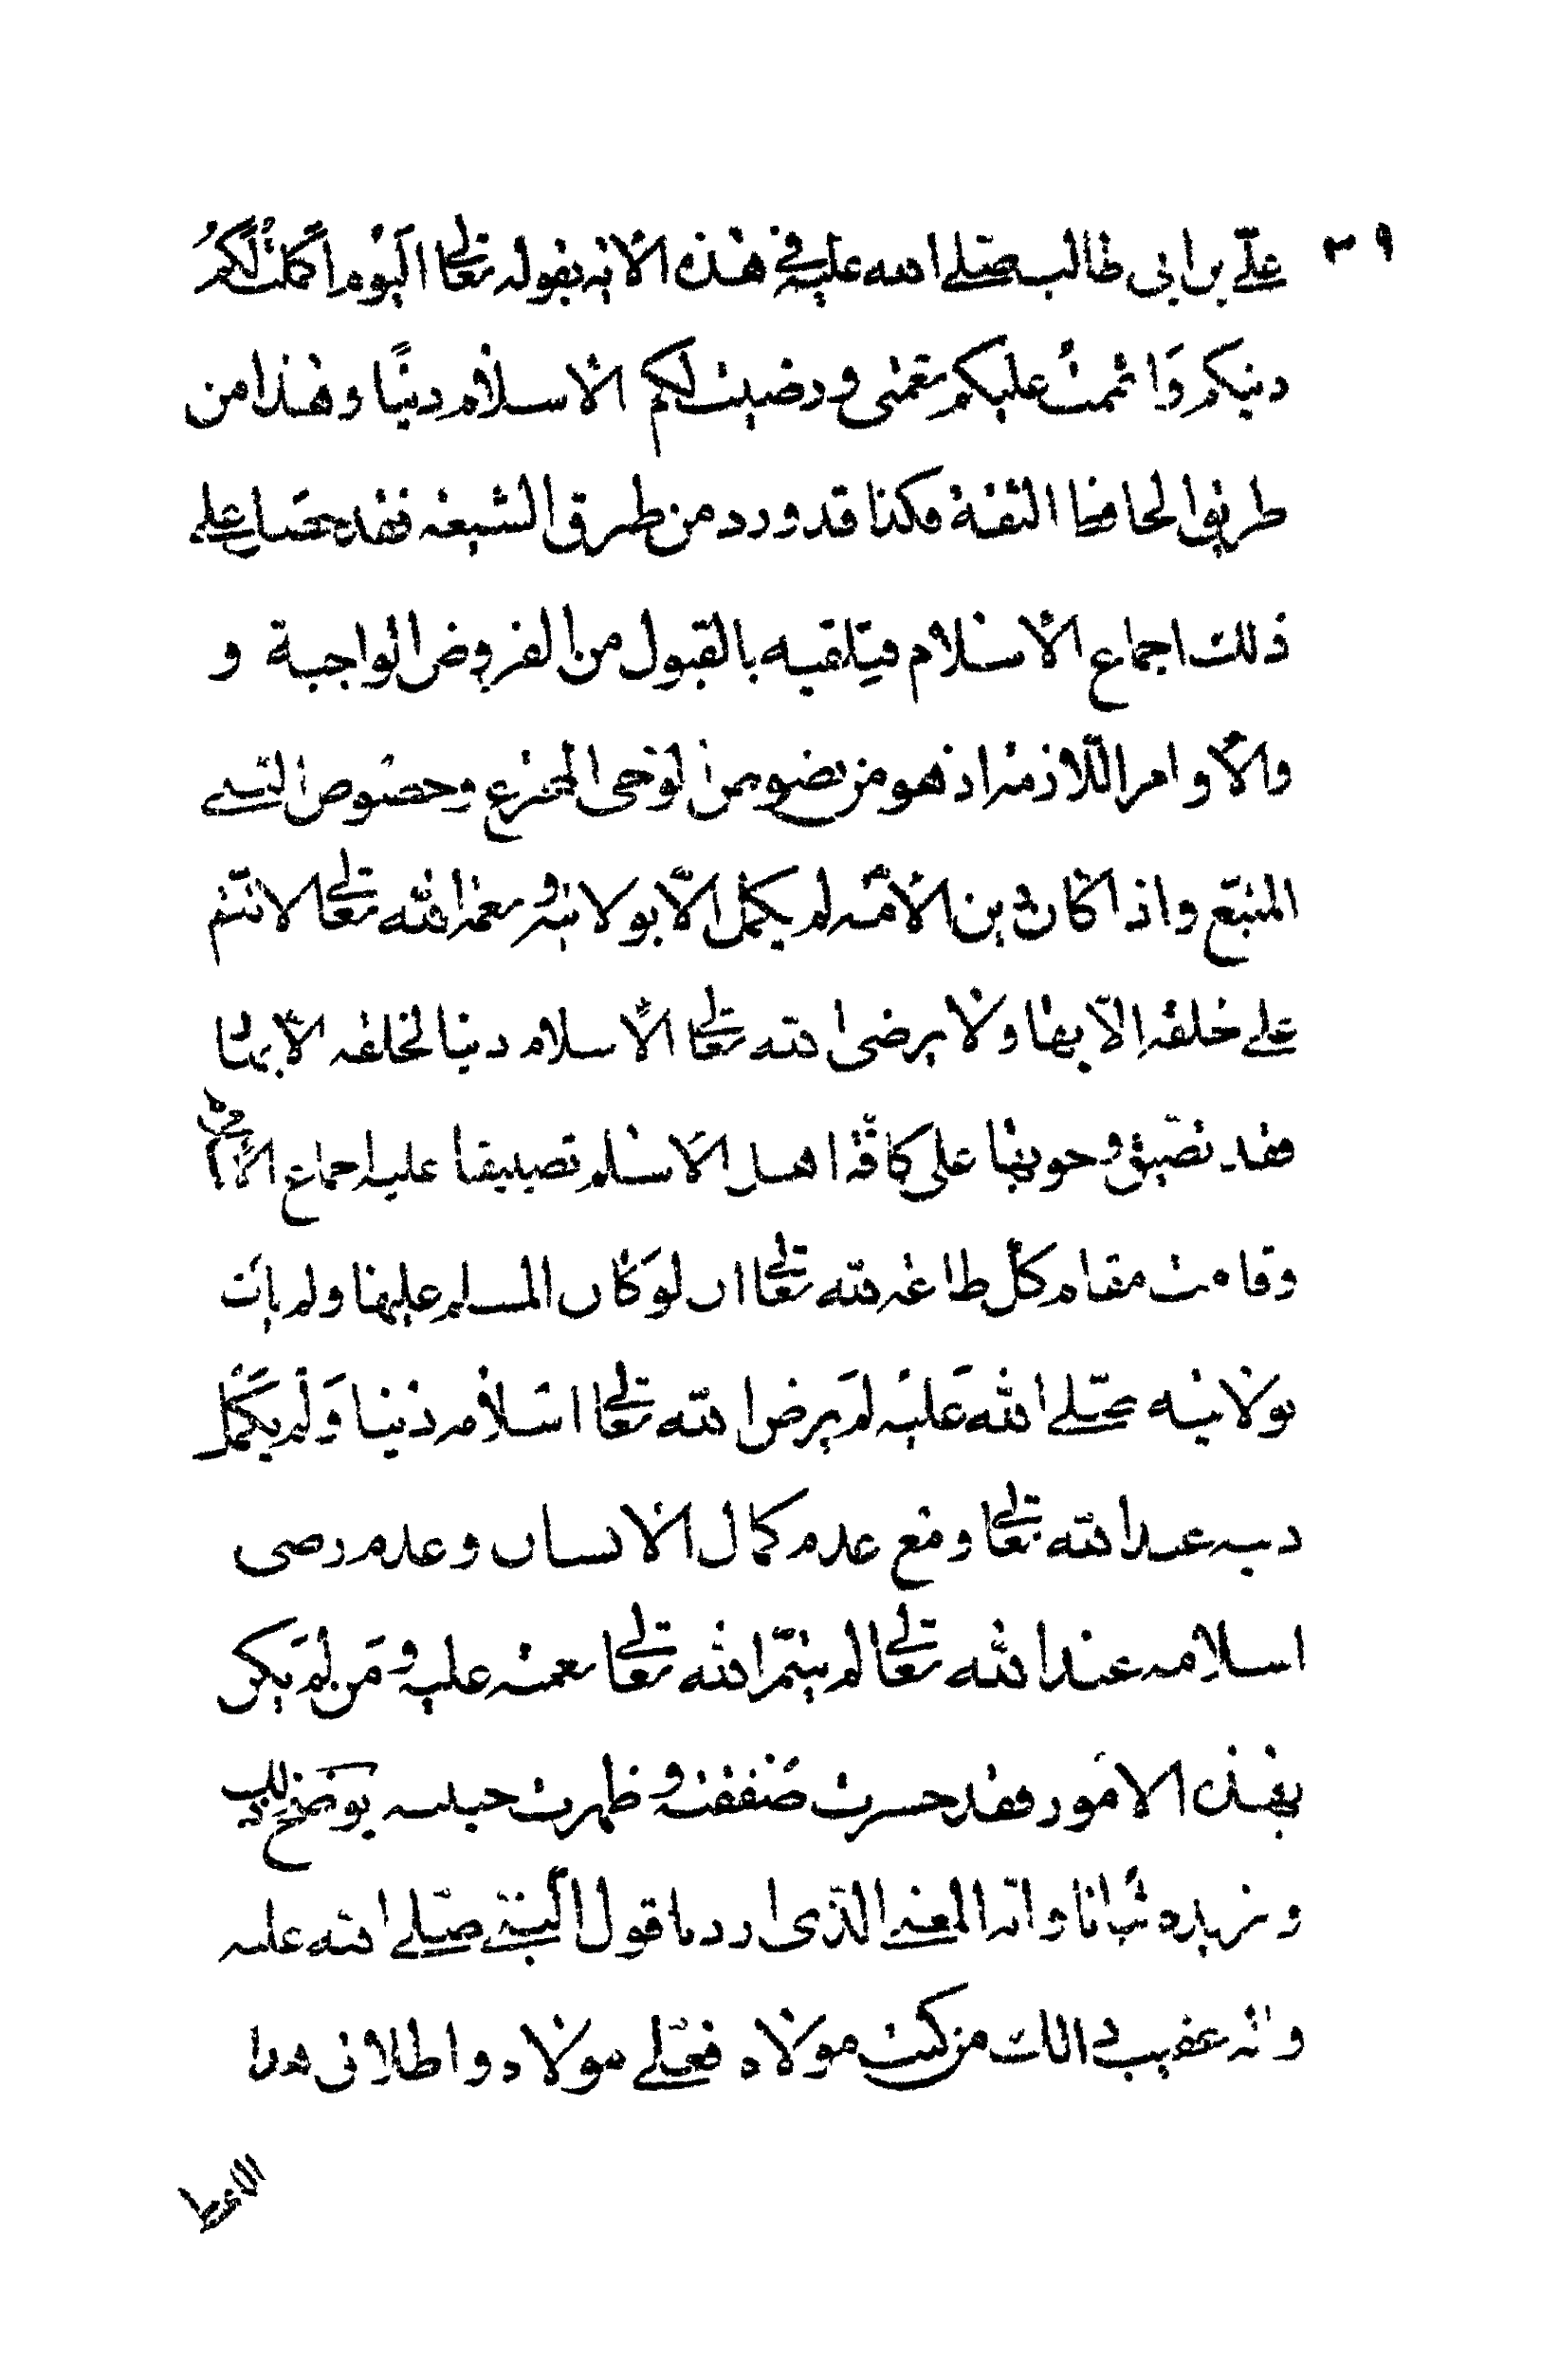 ٣٩
علي بن ابي طالب صلى الله عليه في هذه الآية بقوله تعالى اليَوْم اكملتُ لكُم
دينكم وَاتممتُ عليكم نعمتي ورضيت لكم الاسلام دينًا وهذا من
طريق الحافظ الثقة وكذا قد ورد من طرق الشيعة فقد حصل على
ذلك اجماع الاسلام فيتلقيه بالقبول من الفروض الواجبة و
والأوامر اللازمة اذ هو من نصوص الوحي وخصوص النبي
المتبع واذا كان دين الأمة لم يكمل الّا بولايته ونعمة الله تعالى لا تتم
على خلقه الّا بها ولا يرضى الله تعالى الاسلام دينا لخلقه الا بها
فقد تضيق وجوبها على كافة اهل الاسلم تضييقا عليه اجماع
وقامت مقام كل طاعة لله تعالى ان لو كان المسلم عليها ولم يأت
بولايته صلى الله عَليْه لَم يرض الله تعالى اسلامه دينا وَلم يكمل
دينه عند الله تعالى ومع عدم كمال الانسان وعدم رضى
اسلامه عند الله تعالى لم يتمّ الله تعالى نعمته عليه ومَن لم يكن
بهذه الامور فقد خسرت صفقته وظهرت حيلته يوضح ذلك
ونزيده بيانا وانه المعنى الذي اردنا قول النبي صلى الله عليه
وآله عقيب ذالك من كنت مولاه فعلي مولاه واطلاق هذا